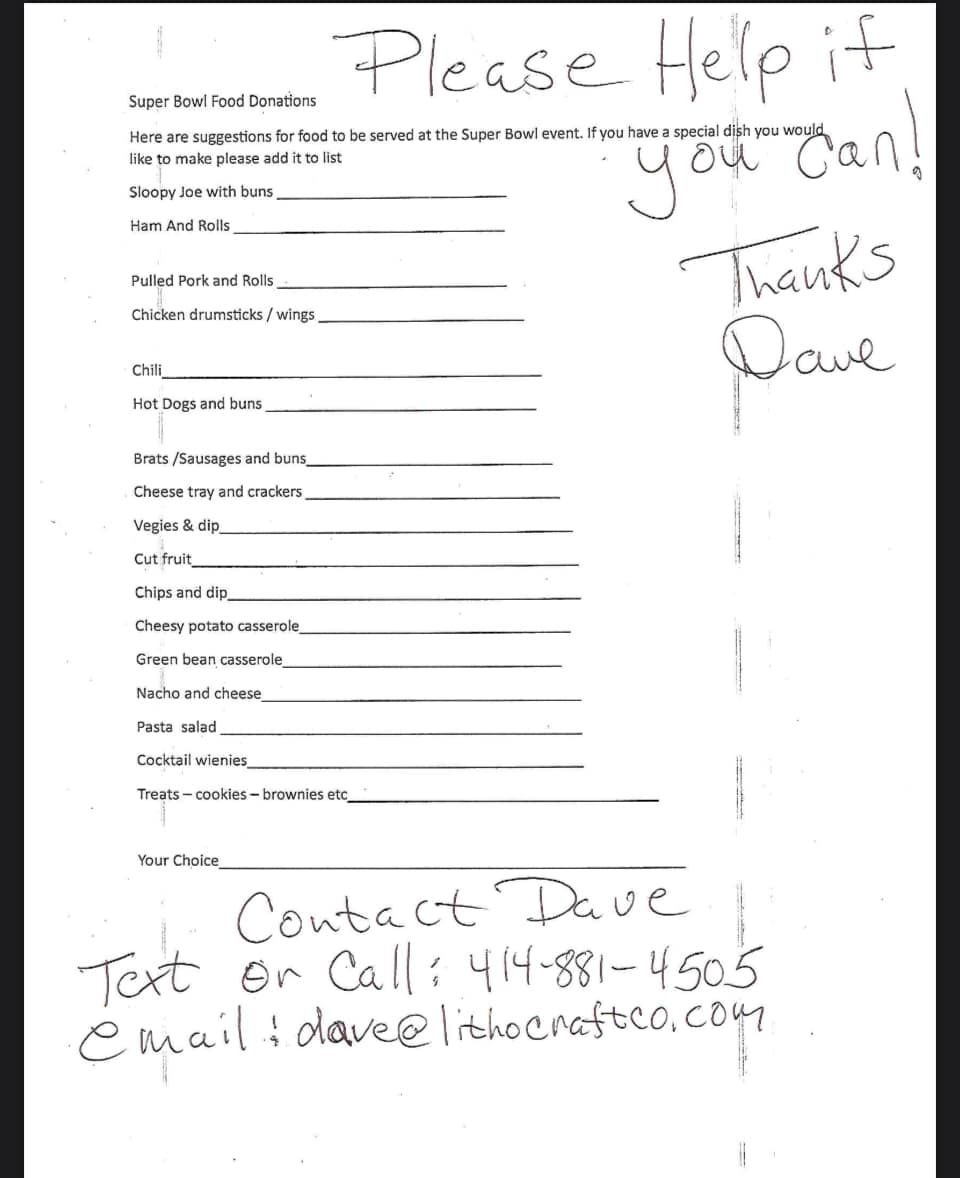 Please Help if
you can!
Thanks
Dave
Super Bowl Food Donations
Here are suggestions for food to be served at the Super Bowl event. If you have a special dish you would
like to make please add it to list
Sloopy Joe with buns
Ham And Rolls
Pulled Pork and Rolls
Chicken drumsticks / wings
Chili
Hot Dogs and buns
Brats /Sausages and buns
Cheese tray and crackers
Vegies & dip
Cut fruit
Chips and dip
Cheesy potato casserole
Green bean casserole
Nacho and cheese
Pasta salad
Cocktail wienies
Treats – cookies – brownies etc
Your Choice
Contact Dave
Text or Call: 414-881-4505
email: dave@lithocraftco.com